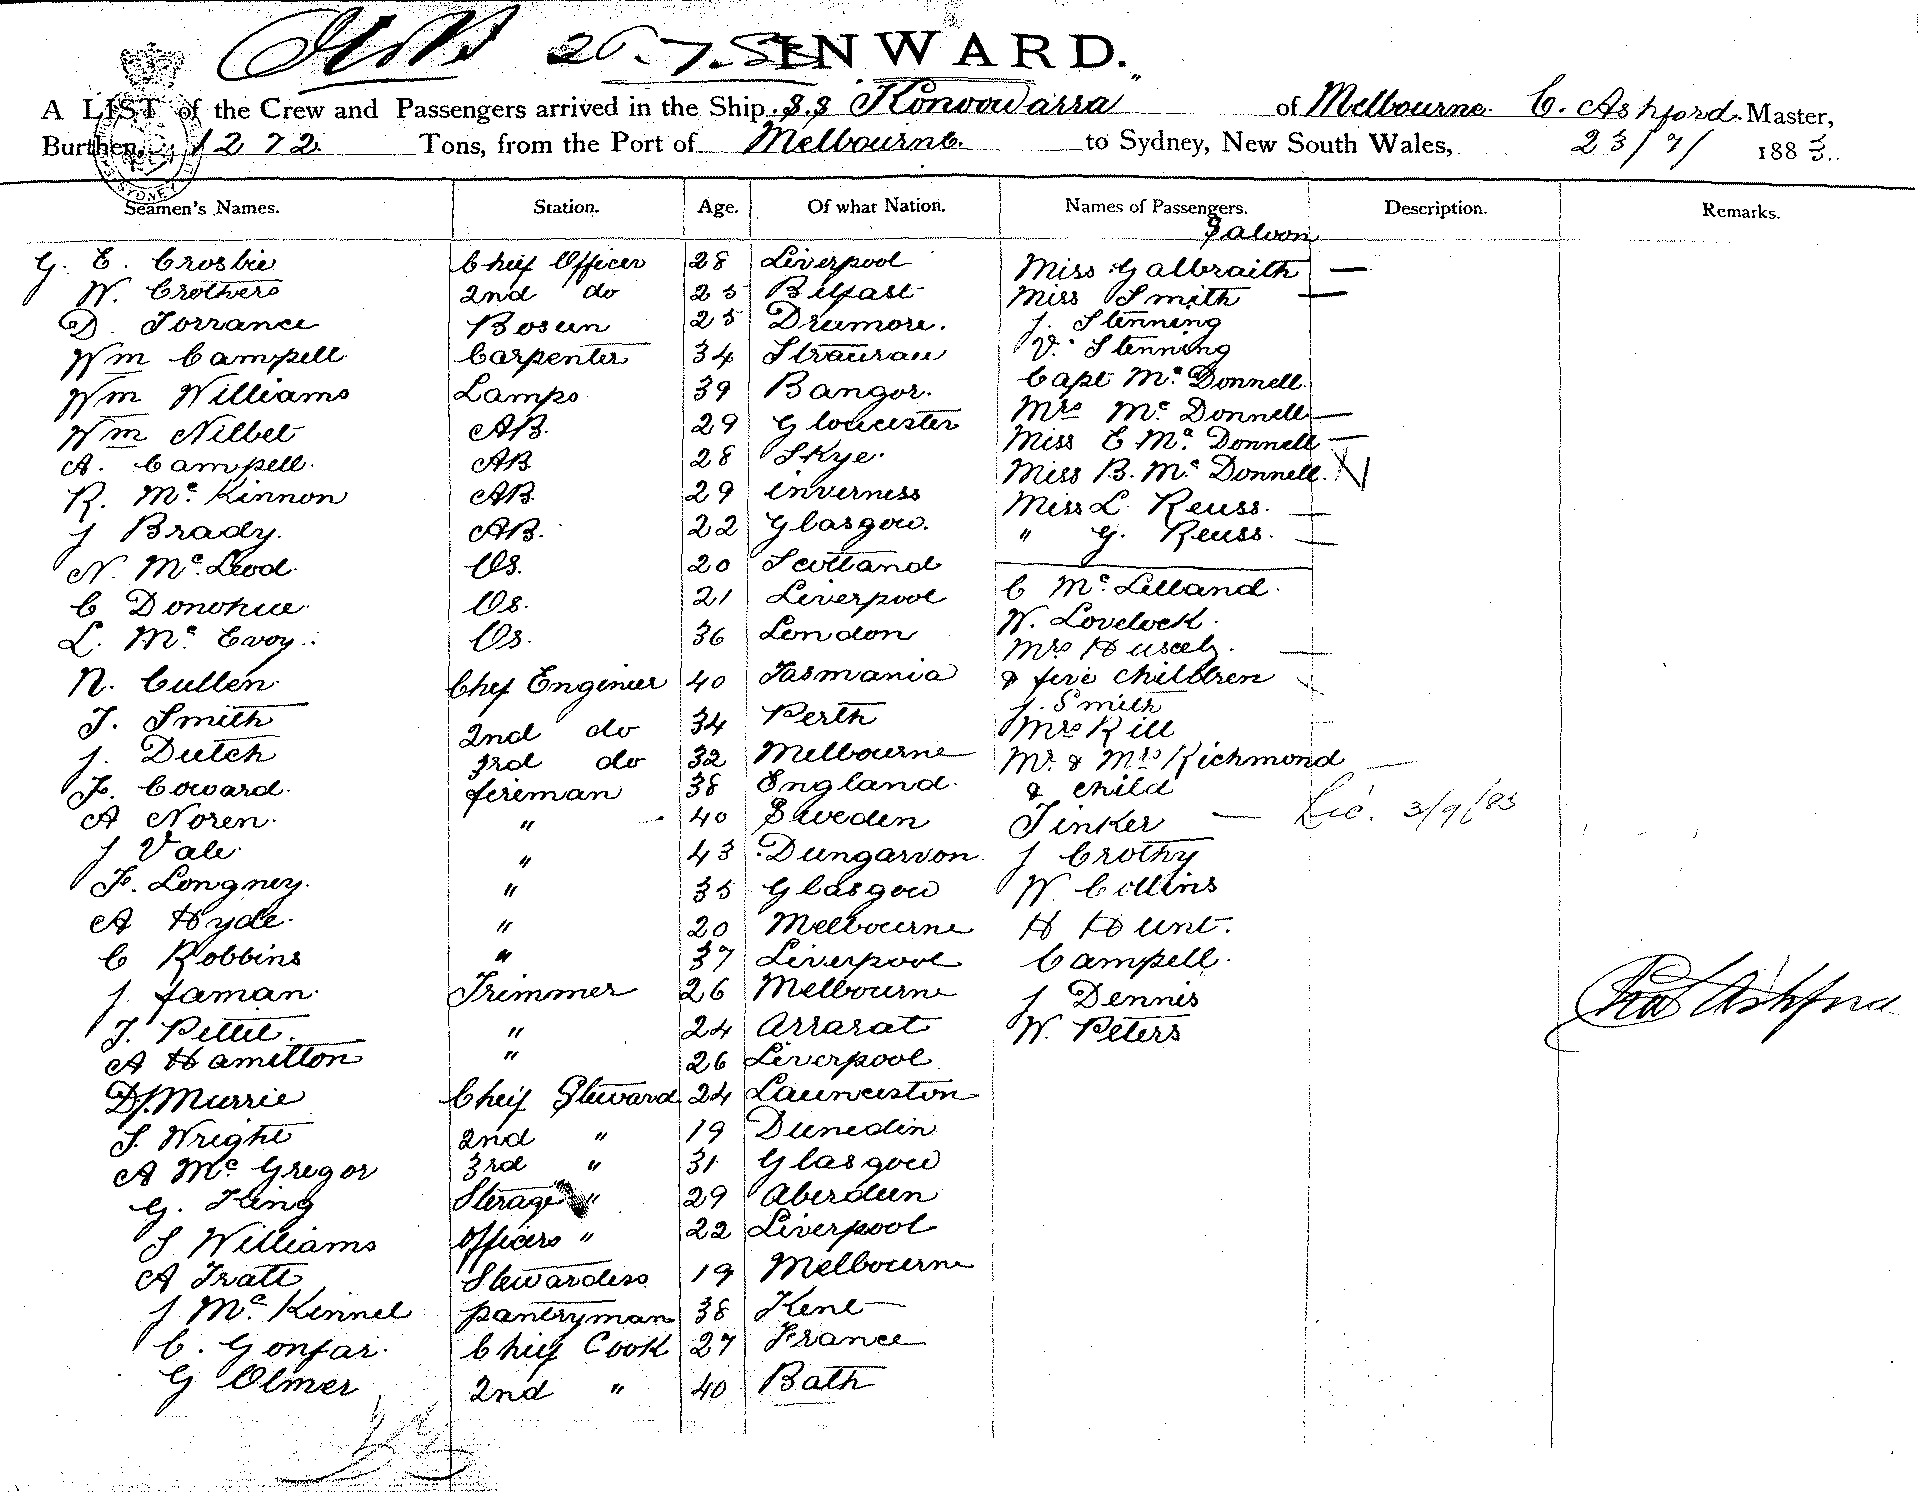 26.7.83 INWARD.
A LIST of the Crew and Passengers arrived in the Ship S.S "Konoowarra" of Melbourne. C. Ashford. Master,
Burthen, 1272 Tons, from the Port of Melbourne. to Sydney, New South Wales, 23/7/ 1883.
Seamen's Names. Station. Age. Of what Nation. Names of Passengers. Description. Remarks.
Saloon
G. E. Crosbie Chief Officer 28 Liverpool Miss Galbraith —
W. Crothers 2nd do 25 Belfast Miss Smith —
D. Torrance Bosun 25 Drumore. J. Stenning
Wm Campell Carpenter 34 V. Stenning
Wm Williams Lamps 39 Bangor. Capt Mc Donnell.
Wm Nilbet AB. 29 Gloucester Mrs Mc Donnell —
A. Campell. AB 28 Skye. Miss E Mc Donnell —
R. Mc Kinnon AB. 29 inverness Miss B. Mc Donnell.
J Brady. AB. 22 Glasgow. Miss L Reuss. —
N. Mc Leod. Os. 20 Scotland " G. Reuss. —
C Donohue. Os. 21 Liverpool C Mc Lelland.
L. Mc Evoy. Os. 36 London W. Lovelock.
N. Cullen. Chef Engineer 40 Tasmania Mrs —
& five children
T. Smith 2nd do 34 Perth J. Smith
J. Dutch 3rd do 32 Melbourne Mrs Kill
F. Coward. fireman 38 England. Mr. & Mrs Richmond —
& child
A Noren. " 40 Sweden Tinker — Lic. 3/9/83
J Vale. " 43 Dungarvon. J Crothy
F. Longney. " 35 Glasgow W Collins
A Hyde. " 20 Melbourne H Hunt.
C Robbins " 37 Liverpool Campell.
J. Jaman. Trimmer 26 Melbourne J Dennis
T. Pettit. " 24 Arrarat W. Peters
Ashford
A Hamilton " 26 Liverpool
D. J. Murrie Cheif Steward 24 Launceston
S. Wright 2nd " 19 Dunedin
A Mc Gregor 3rd " 31 Glasgow
G. King Sterage " 29 Aberdeen
S Williams Officers " 22 Liverpool
A Tratt Stewardess 19 Melbourne
J Mc Kinnel pantryman 38 Kent
C. Gonfar. Chief Cook 27 France
G Olmer 2nd " 40 Bath